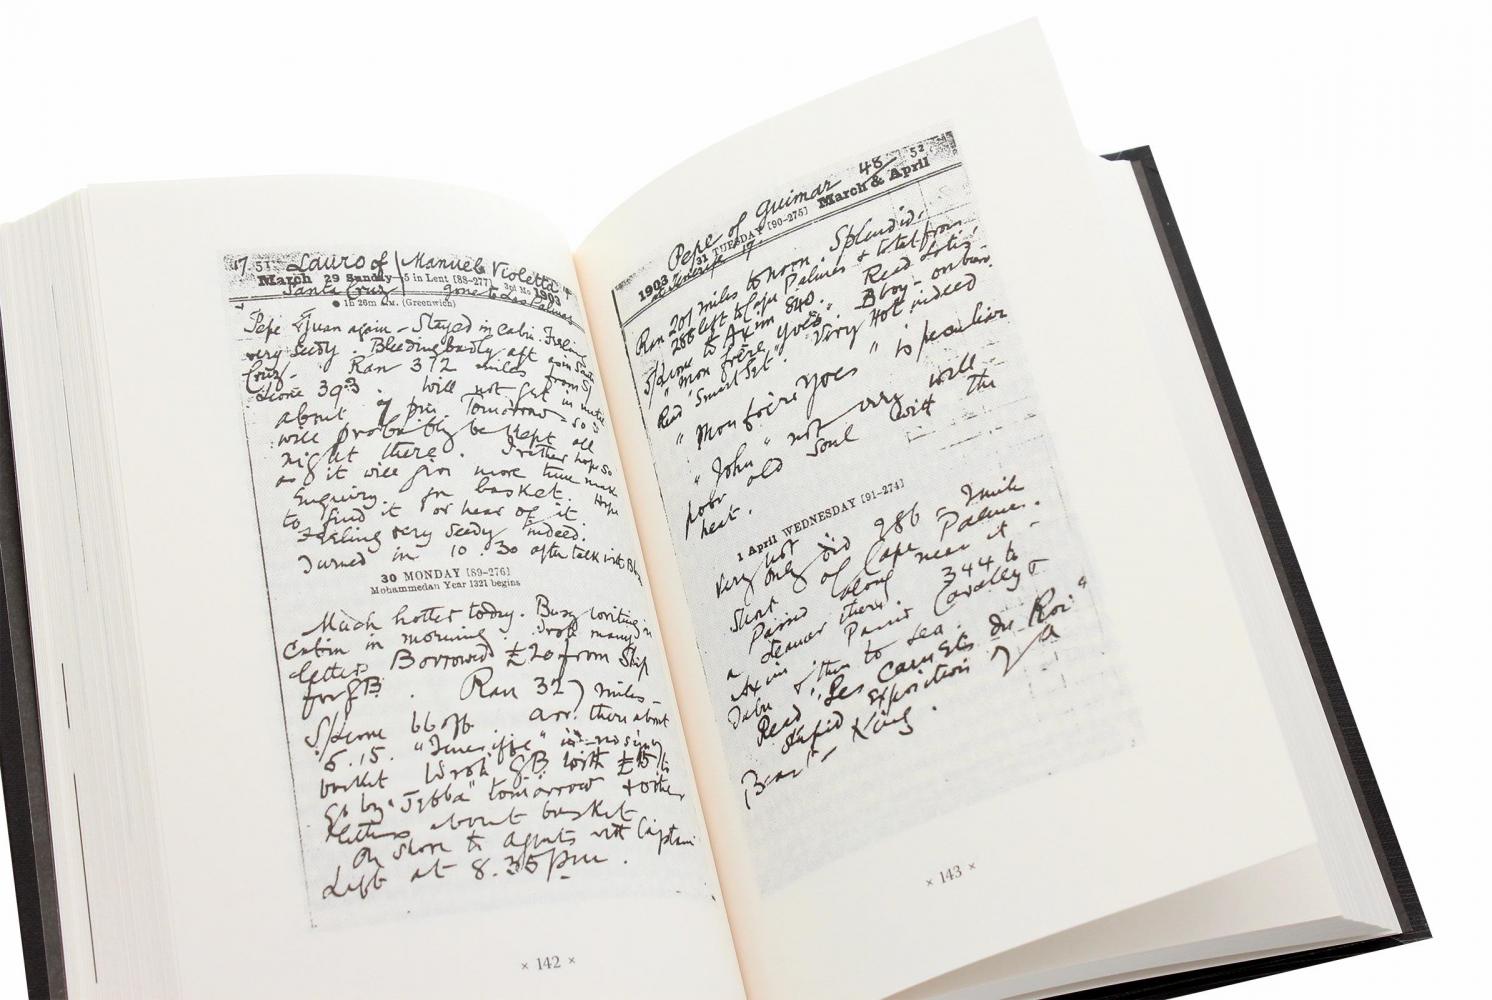 17 51 Lauro of Manuel Violetta
March 29 Sunday 5 in Lent [88-277] 3rd Mo 1903
Santa Cruz gone to Las Palmas
1h 26m A.M. (Greenwich)
Pepe Juan again - Stayed in cabin. Feeling
very seedy. Bleeding badly aft again Santa
Cruz - Ran 372 miles from S/
Leone 393. Will not get in until
about 7 pm. Tomorrow - so
will probably be kept all
night there. I rather hope so
as it will give more time make
Enquiry. for basket. Hope
to find it or hear of it.
Feeling very seedy indeed.
Turned in 10.30 after talk with
30 MONDAY [89-276]
Mohammedan Year 1321 begins
Much hotter today. Busy writing in
cabin in morning. Wrote many
letters Borrowed £20 from Ship
for GB. Ran 327 miles -
S/Leone 66 off. arr. there about
6.15. "Teneriffe" in - no sign
basket Wrote GB. with £15 to
go by "Jebba" tomorrow & other
letters about basket
On shore to Agents with Captain
Left at 8.35 pm.
× 142 ×
Pepe of Guimar 48 52
1903 31 TUESDAY [90-275] March & April
at Tenerife 17.
Ran 201 miles to noon. Splendid.
288 left to Cape Palmas & total from
S/Leone to Axim 840. Read Loti's
"Mon frère Yves". B boy - on
Read "Smart Set." Very Hot indeed
"Mon frère Yves" is peculiar
"John" not very well
poor old soul with the
heat.
1 April WEDNESDAY [91-274]
Very hot
only did 286 - 2 mile
short of Cape Palmas.
Passed along near it -
a steamer there. 344 to
Axim Passed Cavally &
Tabu & then to sea.
Read "Les carnets du Roi"
stupid exposition of a
Beast King.
× 143 ×